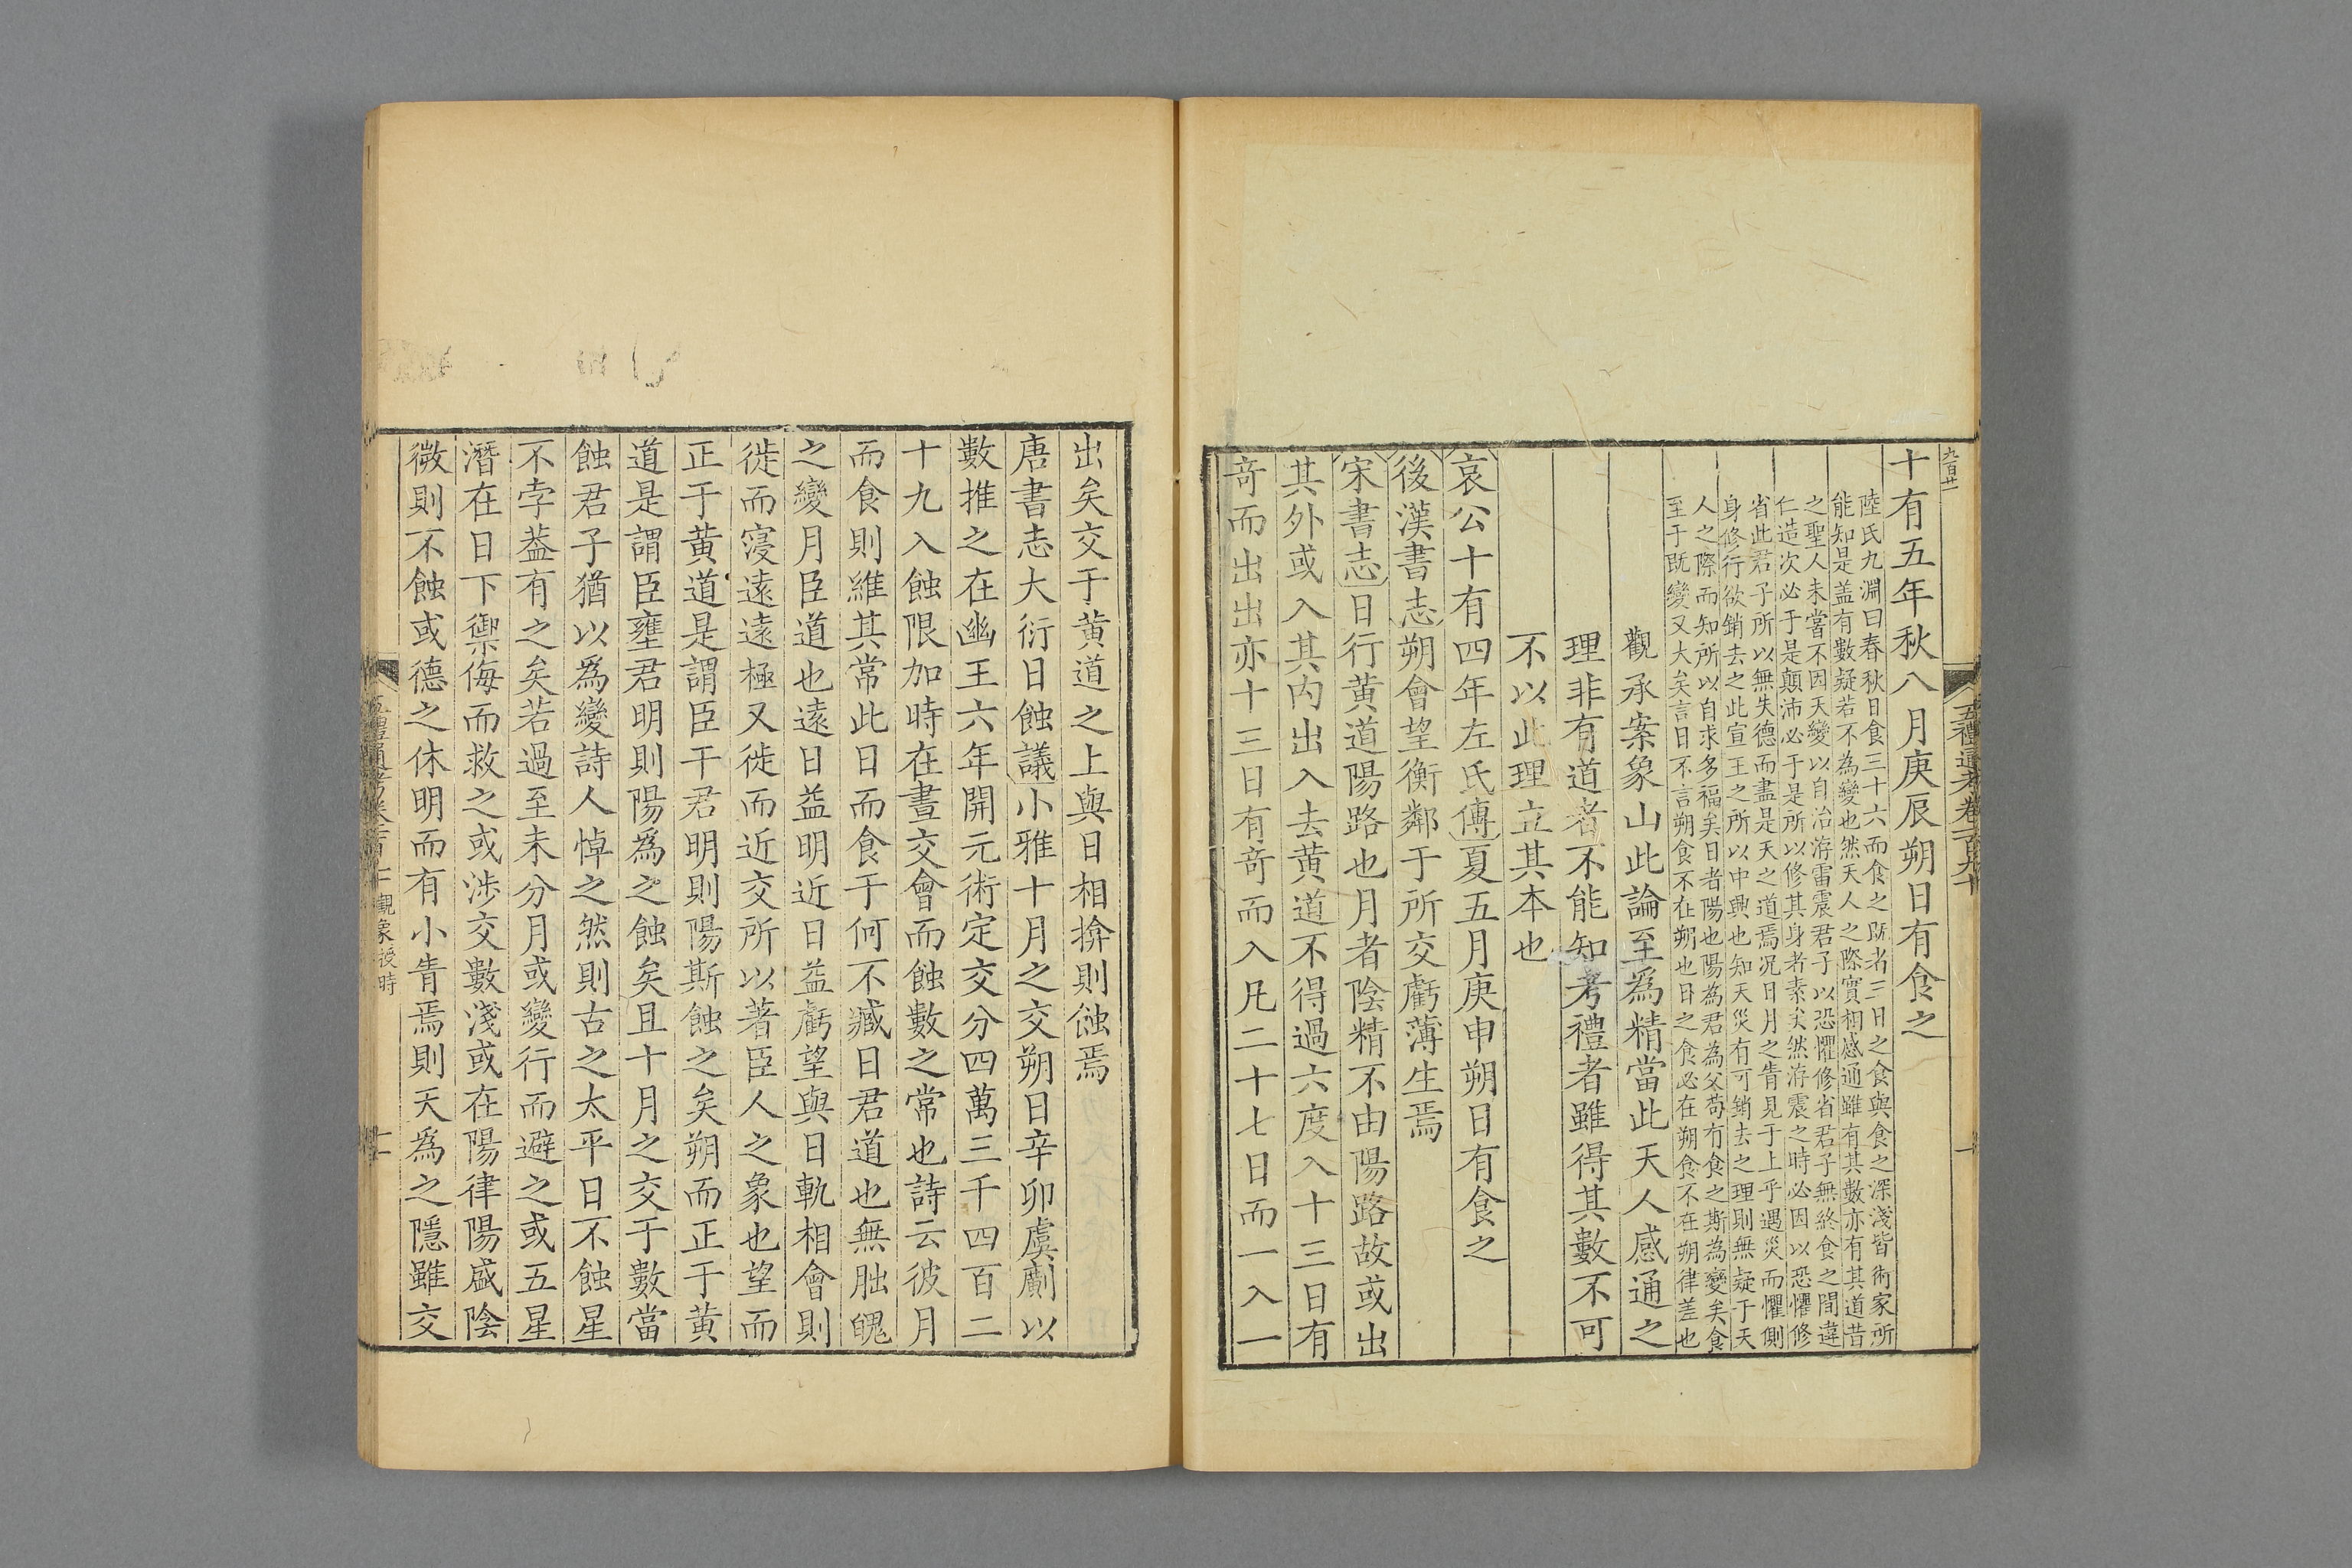 九百廿一
五禮通考卷一百九十
十有五年秋八月庚辰朔日有食之
陸氏九淵曰春秋日食三十六而食之既者三日之食與食之深淺皆術家所
能知是盖有數疑若不為變也然天人之際實相感通雖有其數亦有其道昔
之聖人未嘗不因天變以自治洊雷震君子以恐懼修省君子無終食之間違
仁造次必于是顛沛必于是所以修其身者素矣然洊震之時必因以恐懼修
省此君子所以無失德而盡是天之道焉况日月之眚見于上乎遇災而懼側
身修行欲銷去之此宣王之所以中興也知天災有可銷去之理則無疑于天
人之際而知所以自求多福矣日者陽也陽為君為父苟有食之斯為變矣食
至于既變又大矣言日不言朔食不在朔也日之食必在朔食不在朔律差也
觀承案象山此論至爲精當此天人感通之
理非有道者不能知考禮者雖得其數不可
不以此理立其本也
哀公十有四年左氏傳夏五月庚申朔日有食之
後漢書志朔會望衡鄰于所交虧薄生焉
宋書志日行黄道陽路也月者陰精不由陽路故或出
其外或入其内出入去黄道不得過六度入十三日有
竒而出出亦十三日有竒而入凡二十七日而一入一
出矣交于黄道之上與日相揜則蝕焉
唐書志大衍日蝕議小雅十月之交朔日辛卯虞𠠎以
數推之在幽王六年開元術定交分四萬三千四百二
十九入蝕限加時在晝交會而蝕數之常也詩云彼月
而食則維其常此日而食于何不臧日君道也無朏魄
之變月臣道也遠日益明近日益虧望與日軌相會則
徙而寖遠遠極又徙而近交所以著臣人之象也望而
正于黄道是謂臣干君明則陽斯蝕之矣朔而正于黄
道是謂臣壅君明則陽爲之蝕矣且十月之交于數當
蝕君子猶以爲變詩人悼之然則古之太平日不蝕星
不孛葢有之矣若過至未分月或變行而避之或五星
潛在日下禦侮而救之或涉交數淺或在陽律陽盛陰
微則不蝕或德之休明而有小眚焉則天爲之隱雖交
觀象授時